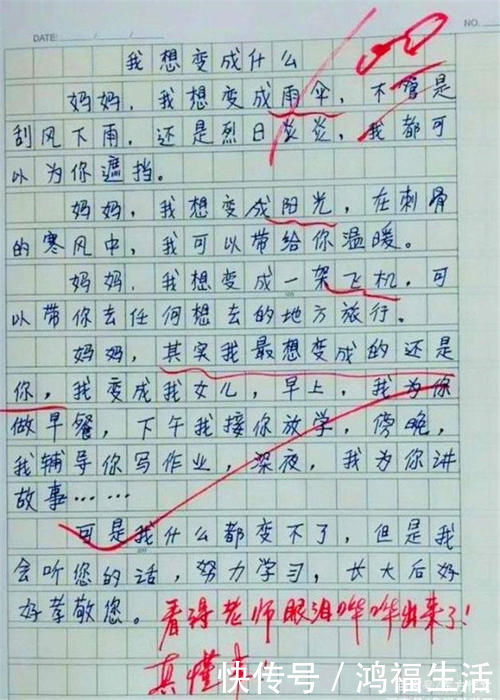 DATE: / /
NO.
我想变成什么
100
妈妈，我想变成雨伞，不管是
刮风下雨，还是烈日炎炎，我都可
以为你遮挡。
妈妈，我想变成阳光，在刺骨
的寒风中，我可以带给你温暖。
妈妈，我想变成一架飞机，可
以带你去任何想去的地方旅行。
妈妈，其实我最想变成的还是
你，我变成我女儿，早上，我为你
做早餐，下午我接你放学，傍晚，
我辅导你写作业，深夜，我为你讲
故事……
可是我什么都变不了，但是我
会听您的话，努力学习，长大后好
好孝敬您。看得老师眼泪哗哗出来了！
真懂
快传号／鸿福生活